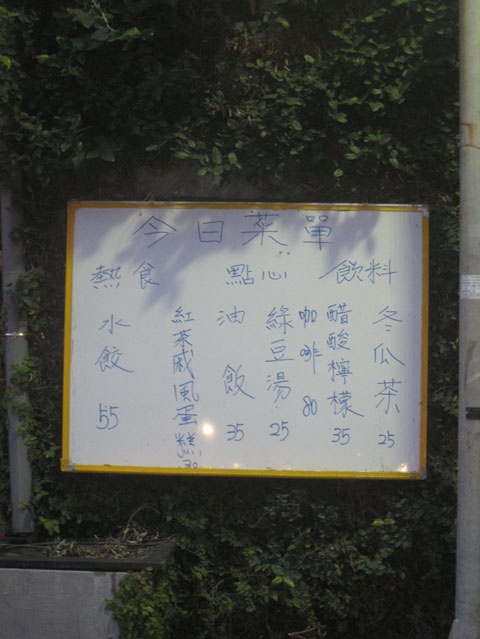 今日菜單
飲料
冬瓜茶 25
醋酸檸檬 35
咖啡 80
點心
綠豆湯 25
油飯 35
紅茶戚風蛋糕 30
熱食
水餃 55